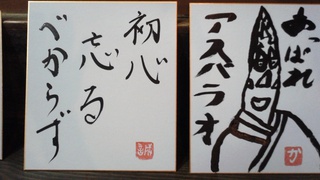 初心
忘る
べからず
あっぱれ
アスパラオ
か